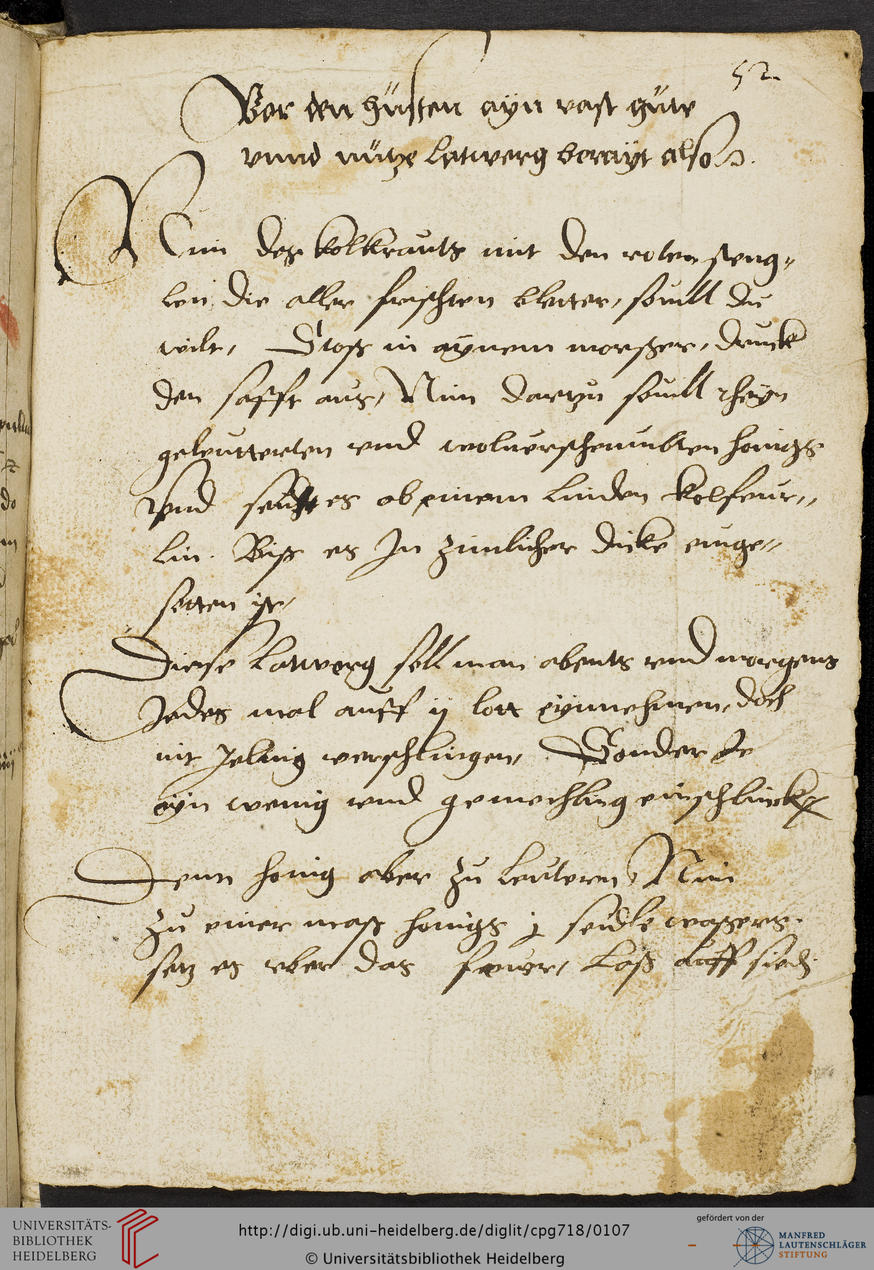 52.
Vor den hůsten ayn vast gůte
vnnd nütze latwerg berayt also.
Nim des kolkrauts mit den roten steng„
len die aller frischten bletter, souill du
wilt, Stoß in aynem morßer, druck
den safft aus, Nim dartzu souill rheyn
geleutterten vnd woluerschaumbten honigs
Vnd seudt es ob einem linden kolfeur„
lin. Biß es In zimlicher dicke einge„
sotten ist,
Diese Latwerg soll man abents vnd morgens
Jedes mal auff ij lott eynnehmen, doch
nit Jeling verschlingen, Sonder Je
ayn wenig vnd gemechling einschlinck
Denn honig aber zu leutern, Nim
zu einer maß honigs j seidle waßers.
setz es vber das feuer, Laß auff sied
UNIVERSITÄTS-
BIBLIOTHEK
HEIDELBERG
http://digi.ub.uni-heidelberg.de/diglit/cpg718/0107
© Universitätsbibliothek Heidelberg
gefördert von der
MANFRED
LAUTENSCHLÄGER
STIFTUNG